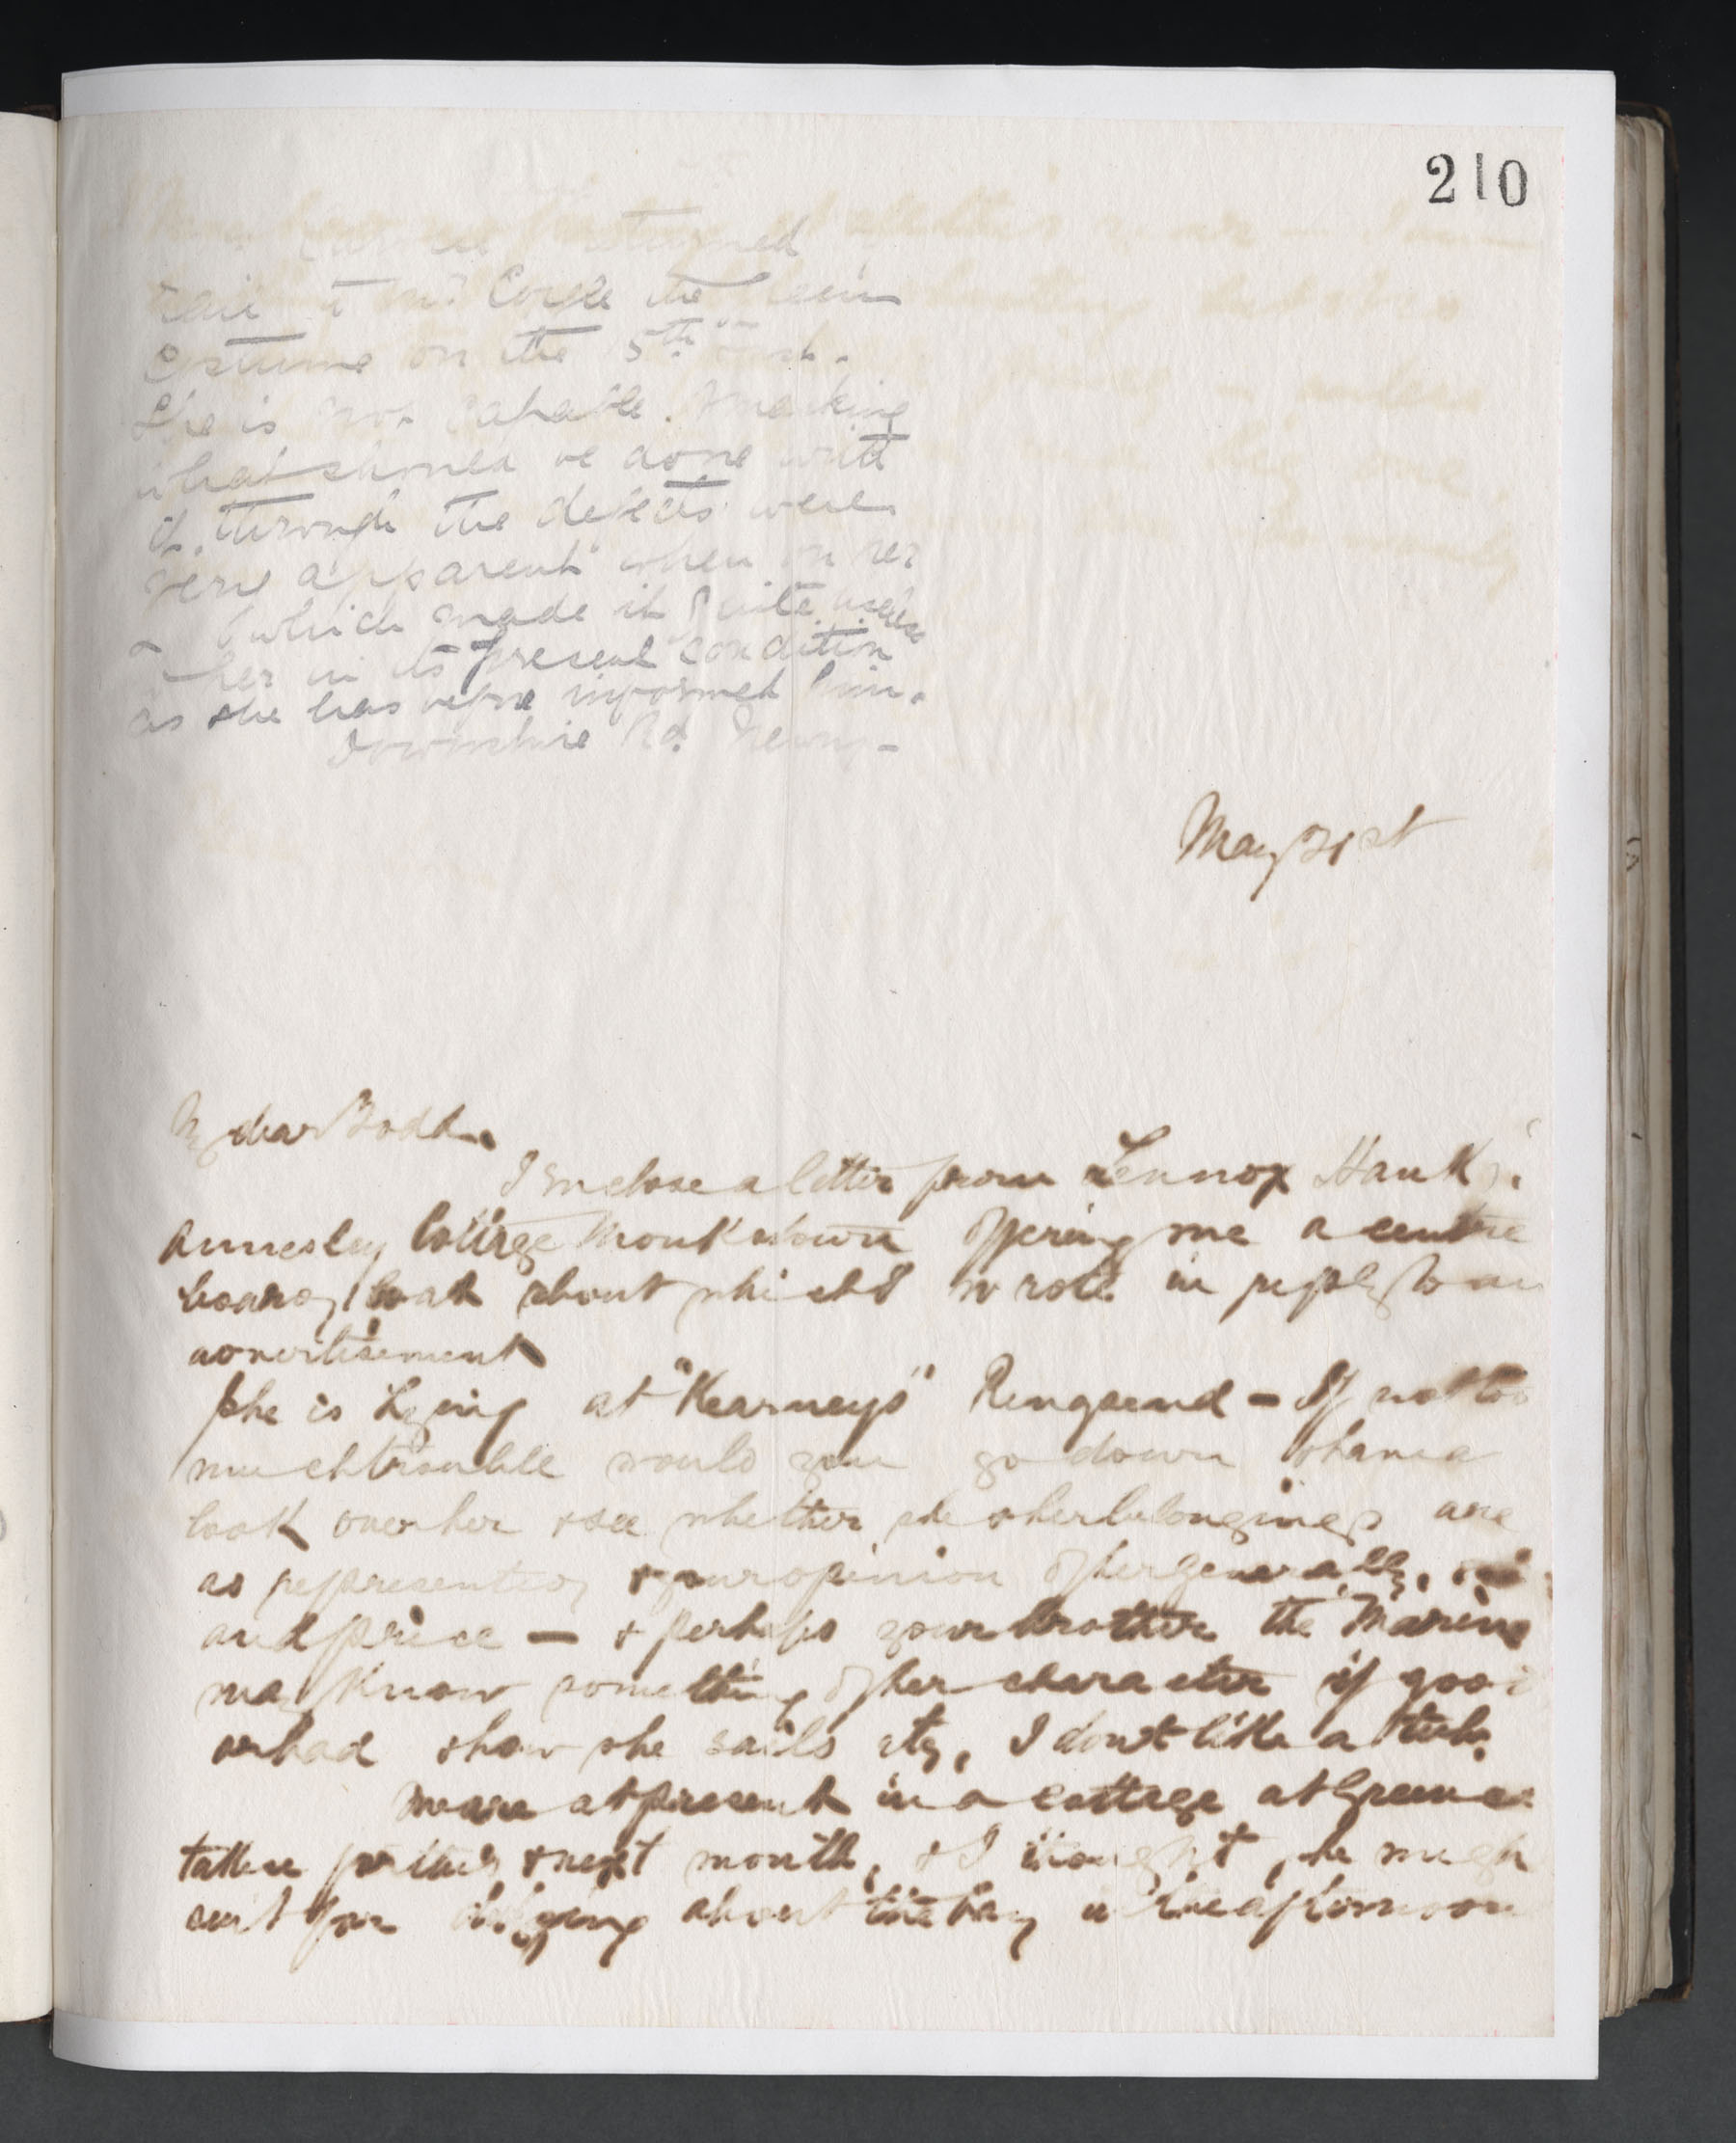 210
returned
to Mr Coyle the
Costume on the 5th inst.
She is not capable making
what should be done with
it through the defects were
very apparent when on her
which made it quite useless
to her in its present condition
as she has before informed him.
Downshire Rd. Newry-
May 31st
My dear Todd
I enclose a letter from Lennox Hawks
Annesley College Monkstown offering me a centre
board boat about which I wrote in reply to an
advertisement
She is lying at "Kearneys" Ringsend - If not too
much trouble would you go down & have a
look over her & see whether she & her belongings are
as represented & your opinion of her generally,
and price - & perhaps your brother the Marine
may know something of her character if good
or bad & how she sails etc, I don't like a tub.
We are at present in a cottage at
taken for this & next month, & I thought she might
suit for about the bay in the afternoon